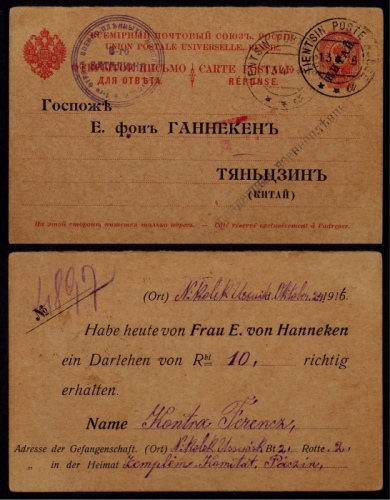 ВСЕМІРНЫЙ ПОЧТОВЫЙ СОЮЗЪ. РОССІЯ
UNION POSTALE UNIVERSELLE. RUSSIE
ОТКРЫТОЕ ПИСЬМО CARTE POSTALE
ДЛЯ ОТВѢТА. RÉPONSE.
TIENTSIN POSTE
КИТАЙ
Госпожѣ
Е. фонъ ГАННЕКЕНЪ
ТЯНЬЦЗИНЪ
(КИТАЙ)
На этой сторонѣ пишется только адресъ. — Côté réservé exclusivement à l'adresse.
№ 4897
(Ort) Nikolsk Ussurisk. Oktober 24 1916.
Habe heute von Frau E. von Hanneken
ein Darlehen von Rbl 10, richtig
erhalten.
Name Kontra Ferencz,
Adresse der Gefangenschaft. (Ort) Nikolsk Ussurisk Bt 2, Rotte 2,
„ in der Heimat Zemplém Komitát, Páczin,